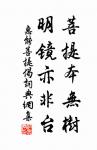 菩提本無樹
明鏡亦非台
惠能菩提偈詞典網集